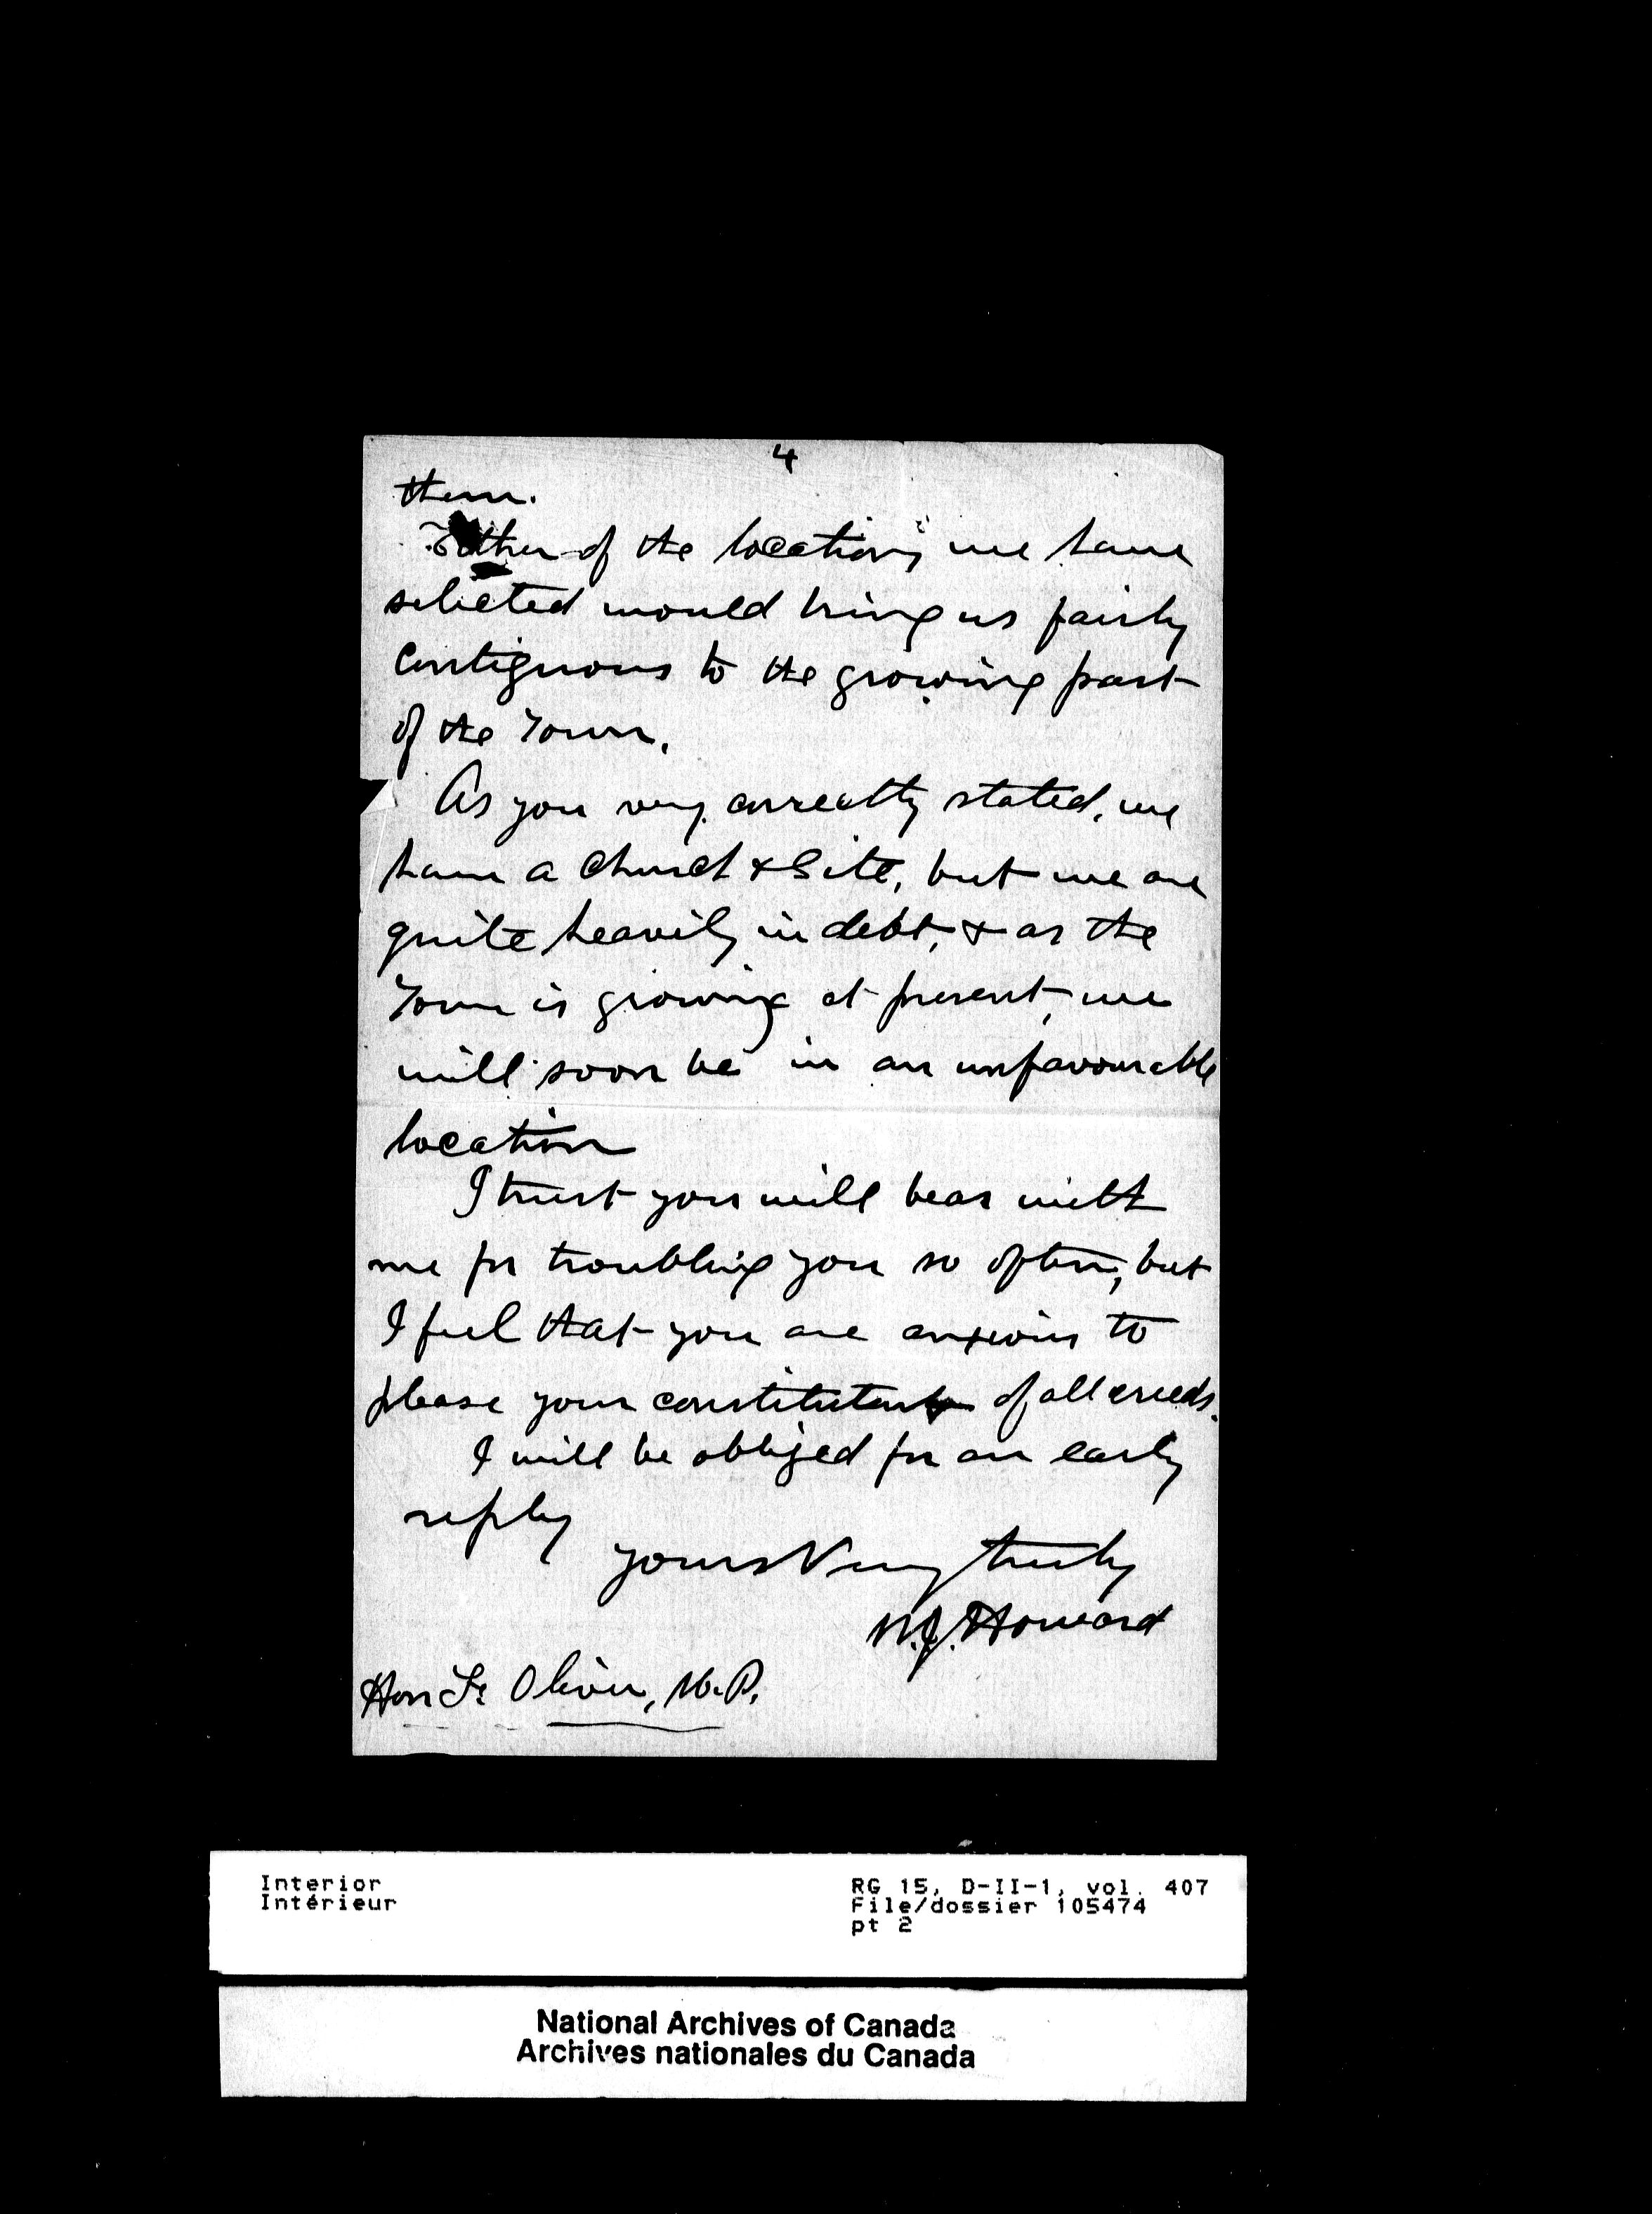 4
them.
Either of the locations we have
selected would bring us fairly
contiguous to the growing part
of the Town.
As you very correctly stated, we
have a Church & Site, but we are
quite heavily in debt, & as the
Town is growing at present, we
will soon be in an unfavourable
location
I trust you will bear with
me for troubling you so often, but
I feel that you are anxious to
please your constitutents of all creeds.
I will be obliged for an early
reply
yours Very truly
Howard
Hon Fr Oliver, M.P.
Interior
Intérieur
RG 15, D-II-1, vol. 407
File/dossier 105474
pt 2
National Archives of Canada
Archives nationales du Canada